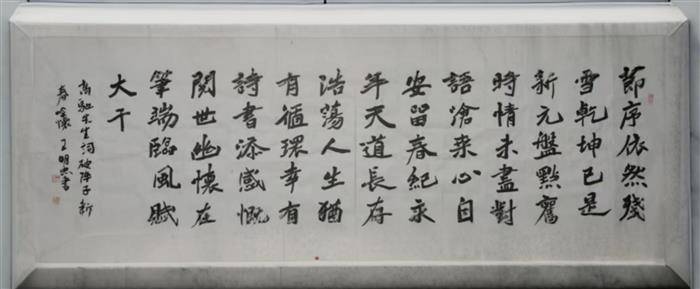 節序依然殘
雪乾坤已是
新元盤點舊
時情未盡對
語滄桒心自
安留春紀永
年天道長存
浩蕩人生猶
有循環幸有
詩書添感慨
閱世幽懷在
筆端臨風賦
大千
先生詞破陣子新
春懷王明書